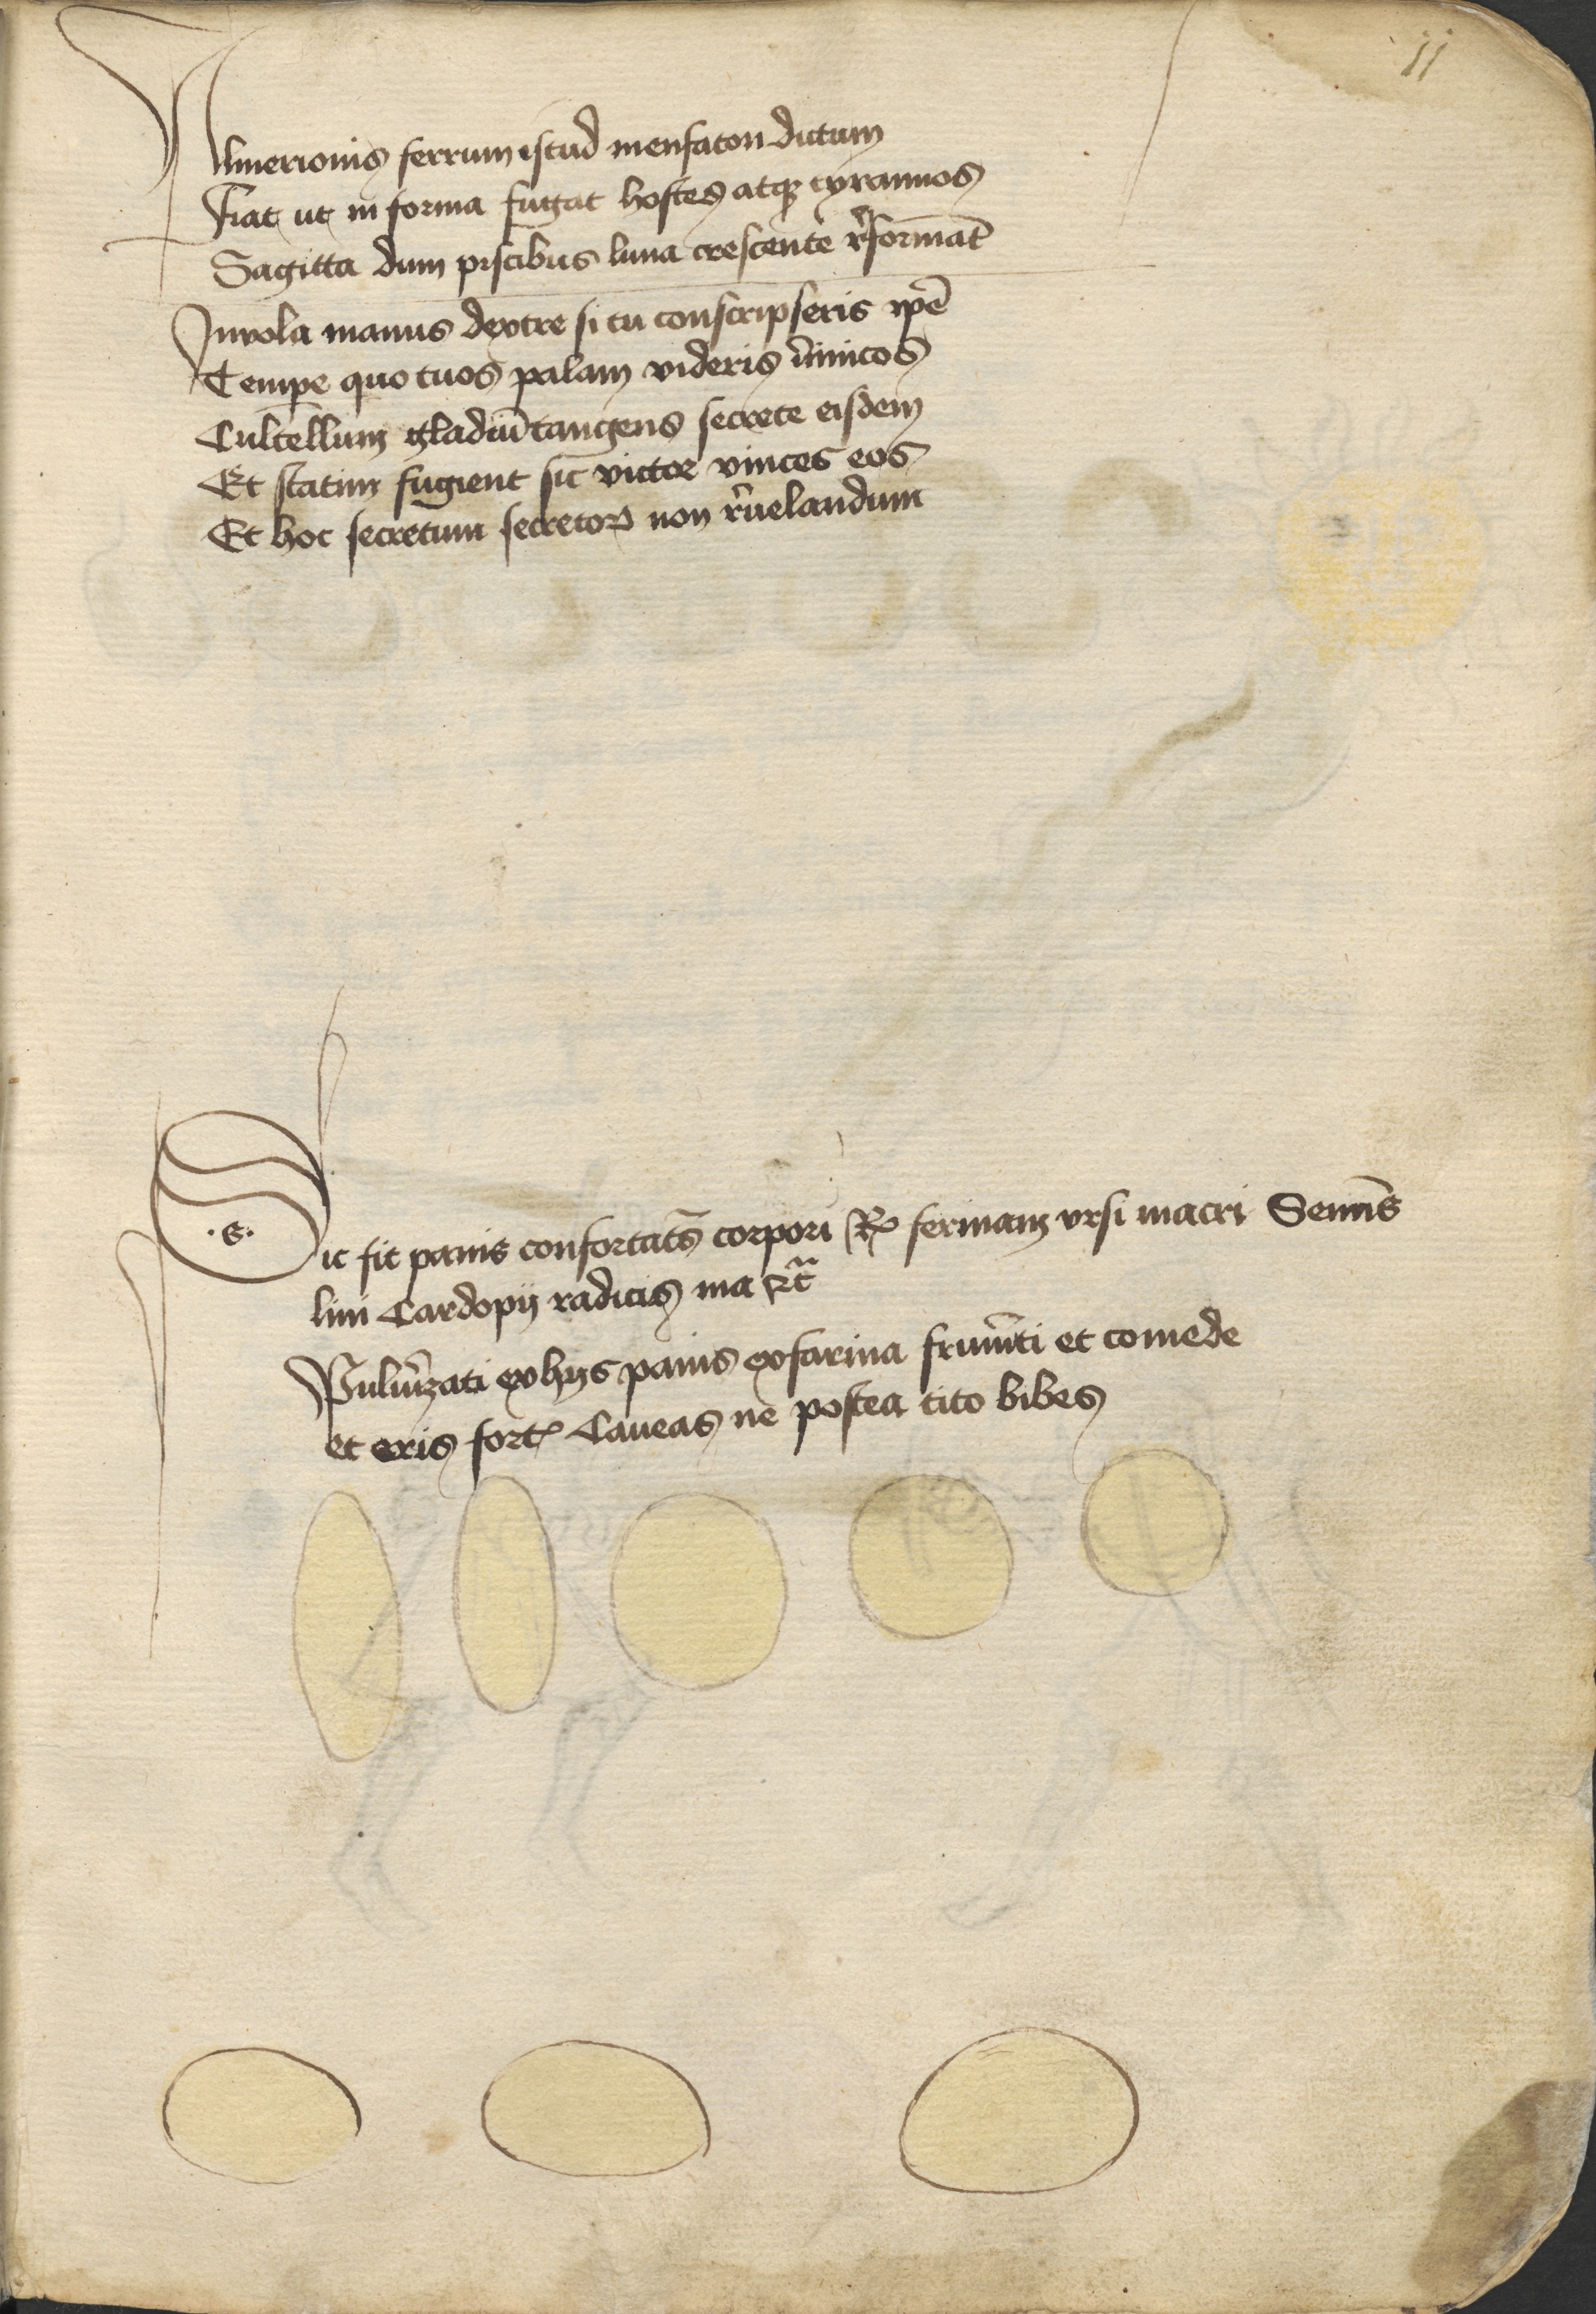 11
Almerionis ferrum istud mensaton dictum
Fiat ut in forma fugat hostes atqꝫ tyrannos
Sagitta dum piscibus luna crescente r̄formāt
In vola manus dextre si tu conscripseris ip̄e
Tempe quo tuos palam videris īimicos
Cultellum gladiū tangens secrete eisdem
Et statim fugient sic victor vinces eos
Et hoc secretum secretoꝝ non r̄uelandum
.S.
Sic fit panis confortat̄s corpori R fermam vrsi macri Semīs
lini Cardopij radicis ma
Pulūizati ex hijs panis ex farina frum̄ti et comede
et eris fort Caueas ne postea cito bibes